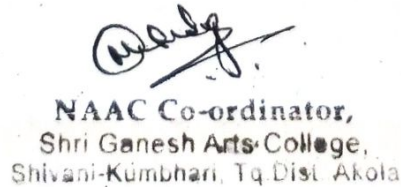 NAAC Co-ordinator,
Shri Ganesh Arts College,
Shivani-Kumbhari, Tq.Dist. Akola